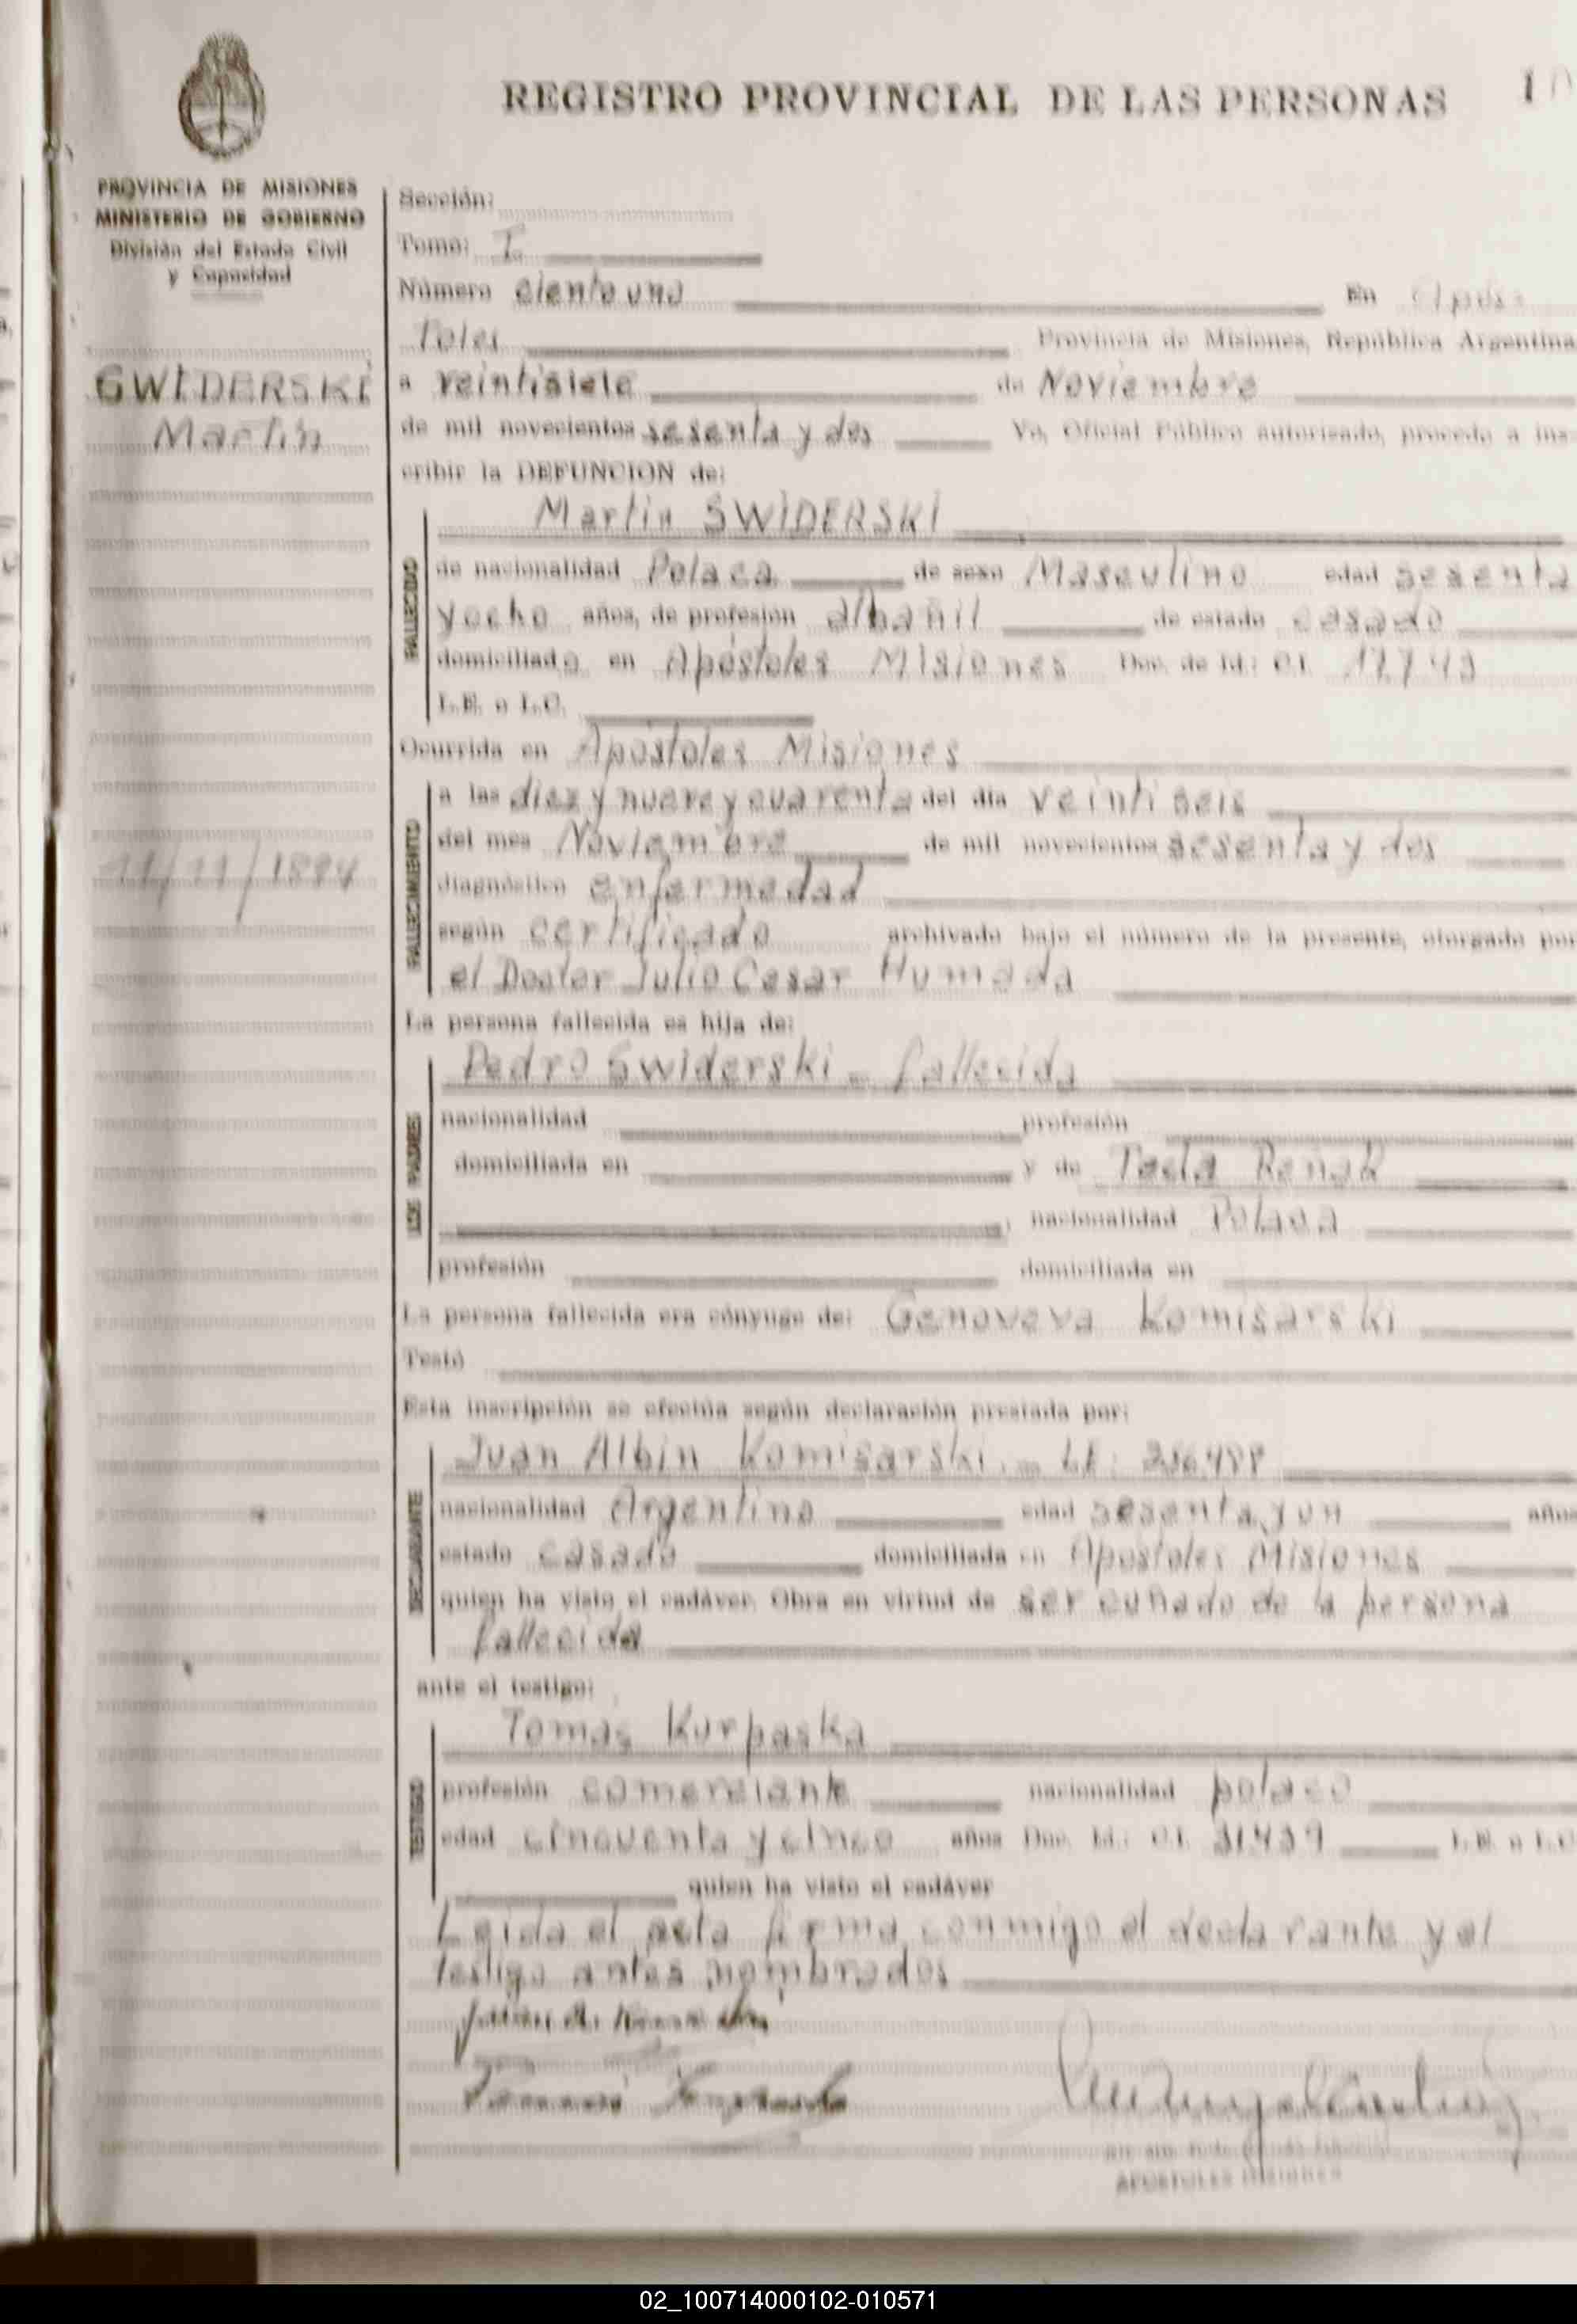 REGISTRO PROVINCIAL DE LAS PERSONAS
PROVINCIA DE MISIONES
MINISTERIO DE GOBIERNO
División del Estado Civil
y Capacidad
SWIDERSKI
Martin
11/11/1894
Sección:
Tomo: I
Número ciento uno En Após-
toles Provincia de Misiones, República Argentina
a veintisiete de Noviembre
de mil novecientos sesenta y dos Yo, Oficial Público autorizado, procedo a ins-
cribir la DEFUNCION de:
FALLECIDO
Martin SWIDERSKI
de nacionalidad Polaca de sexo Masculino edad sesenta
y ocho años, de profesión albañil de estado casado
domiciliado en Apóstoles Misiones Doc. de Id.: C.I.
L.E. o L.C.
Ocurrida en Apóstoles Misiones
FALLECIMIENTO
a las diez y nueve y cuarenta del día veintiseis
del mes Noviembre de mil novecientos sesenta y dos
diagnóstico enfermedad
según certificado archivado bajo el número de la presente, otorgado por
el Doctor Julio Cesar Humada
La persona fallecida es hija de:
LOS PADRES
Pedro Swiderski - fallecido
nacionalidad profesión
domiciliada en y de Tecla
nacionalidad Polaca
profesión domiciliada en
La persona fallecida era cónyuge de: Genoveva Komisarski
Testó
Esta inscripción se efectúa según declaración prestada por:
DECLARANTE
Juan Albin Komisarski.- L.E.
nacionalidad Argentino edad sesenta y un años
estado casado domiciliada en Apostoles Misiones
quien ha visto el cadáver. Obra en virtud de ser cuñado de la persona
fallecida
ante el testigo:
TESTIGO
Tomas Kurpaska
profesión comerciante nacionalidad polaco
edad cincuenta y cinco años Doc. Id.: C.I. 31.439 L.E. o L.C.
quien ha visto el cadáver
Leida el acta firma conmigo el declarante y el
testigo antes nombrados
APOSTOLES MISIONES
02_100714000102-010571